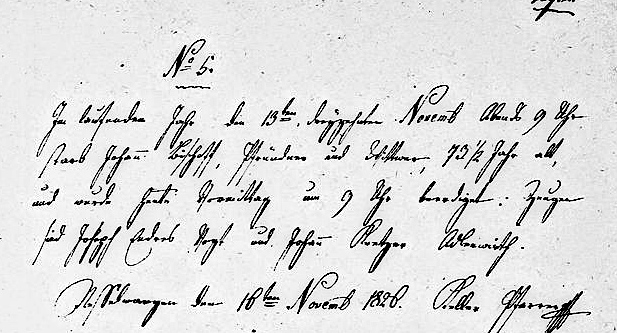 No 5.
Im laufenden Jahr den 13ten, dreyzehnten Novemb Abends 9 Uhr
starb Johann Bischoff, Pfründner und Wittwer, 73 1/2 Jahr alt,
und wurde heute Vormittag um 9 Uhr beerdiget. Zeugen
sind Joseph Endres Vogt und Johann Kretzer Adlerwirth.
den 16ten Novemb 1826. Keller Pfarrer